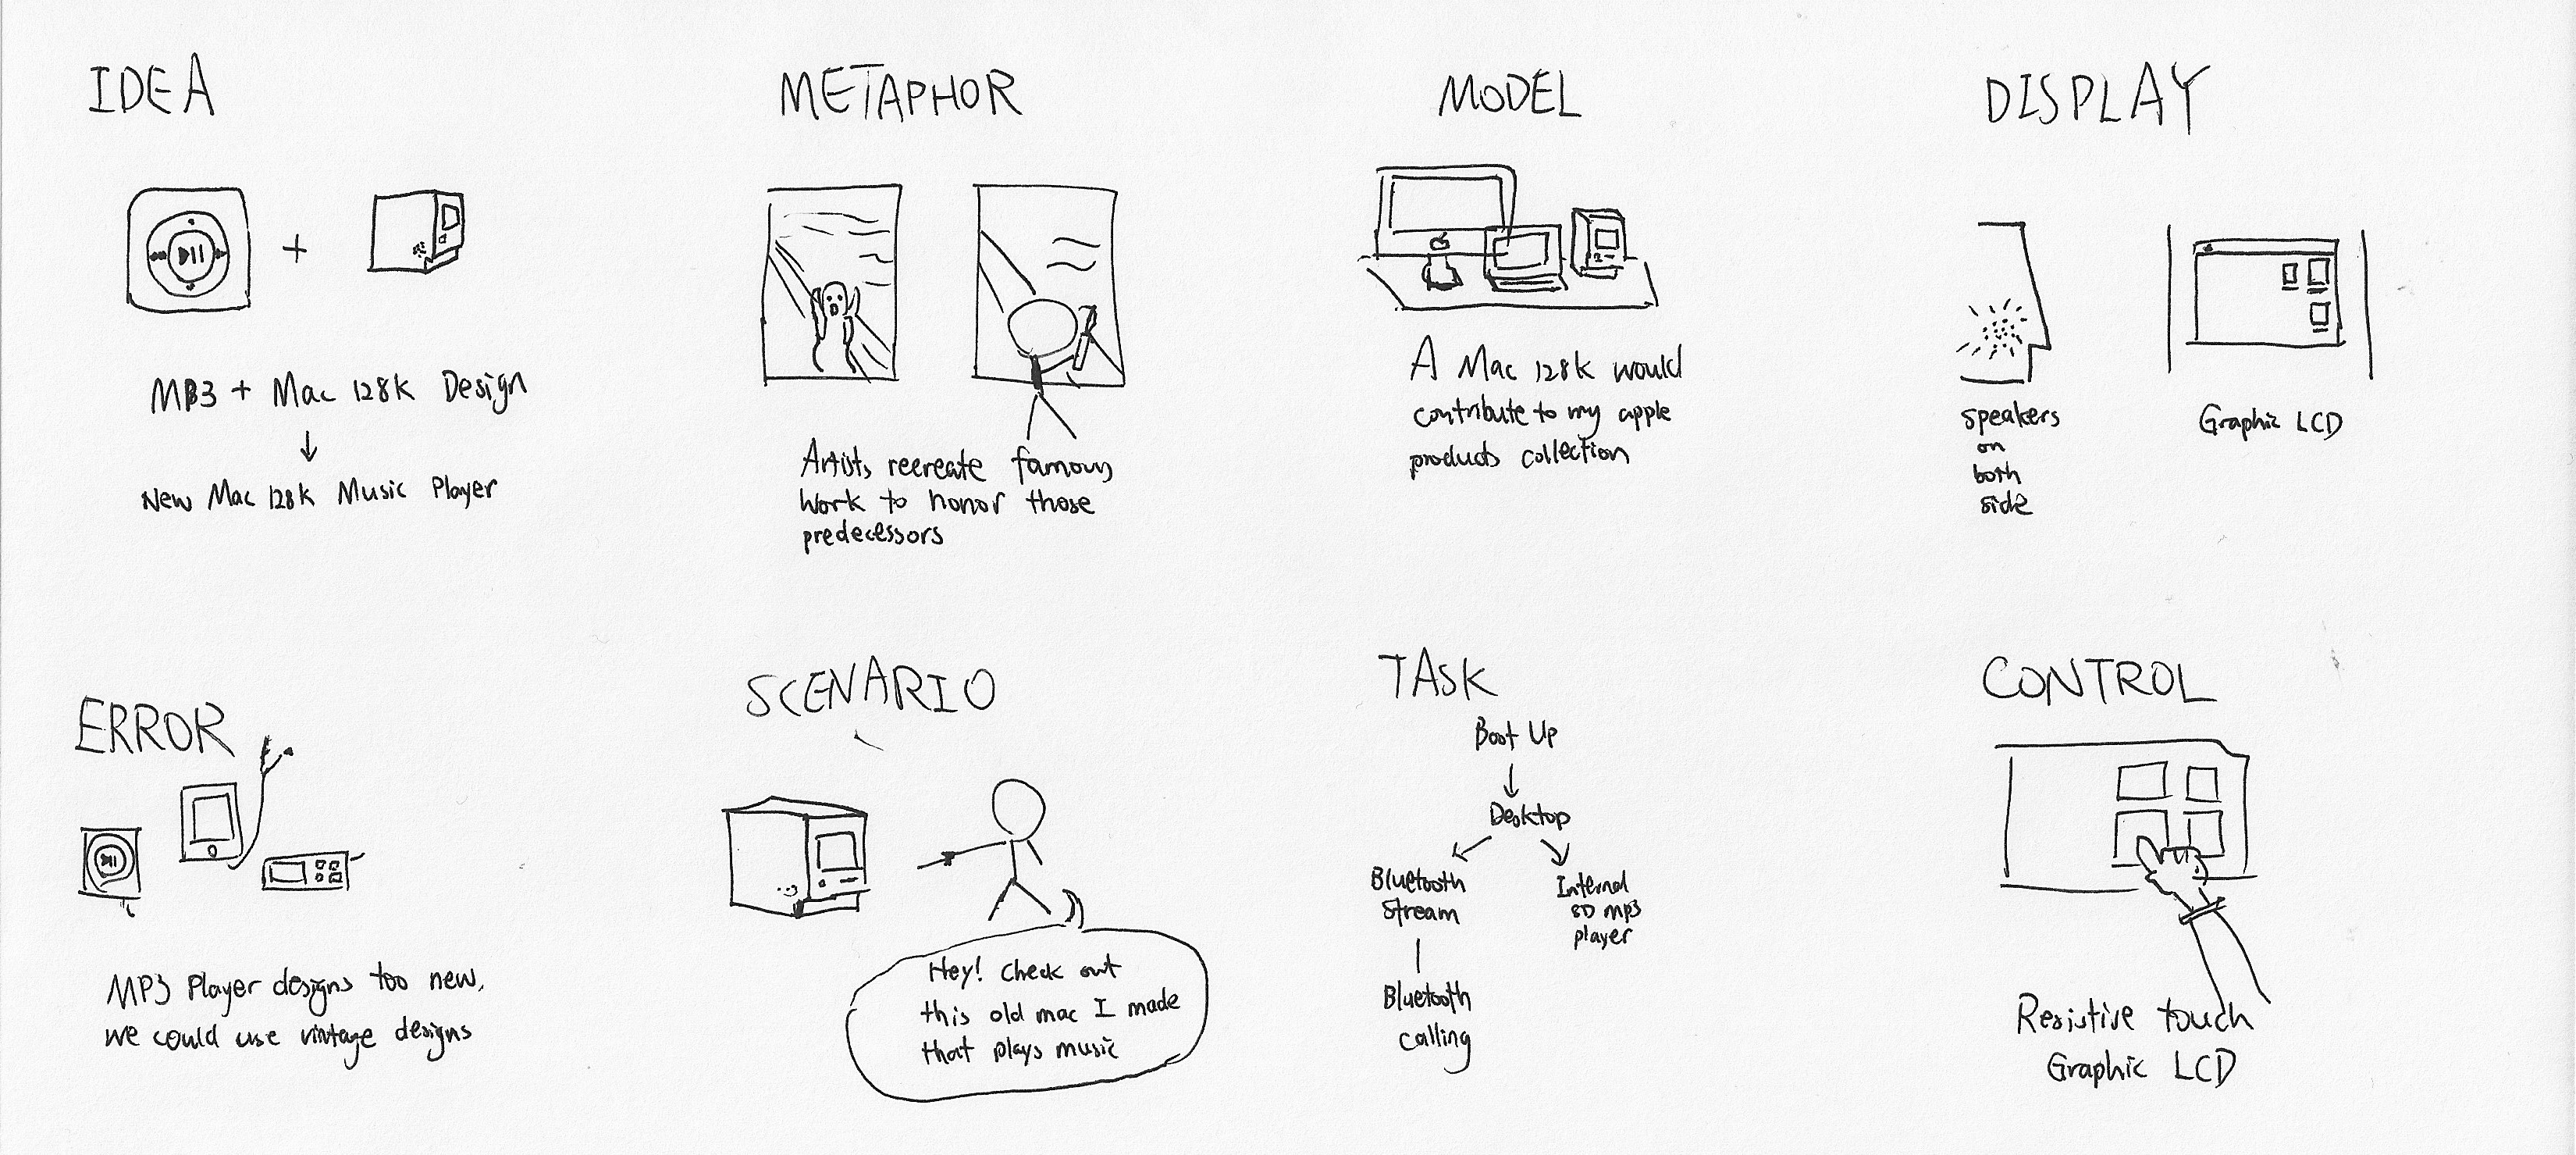 IDEA
MP3 + Mac 128K Design
↓
New Mac 128K Music Player
METAPHOR
Artists recreate famous
work to honor those
predecessors
MODEL
A Mac 128K would
contribute to my apple
products collection
DISPLAY
speakers
on
both
side
Graphic LCD
ERROR
MP3 Player designs too new,
we could use vintage designs
SCENARIO
Hey! Check out
this old mac I made
that plays music
TASK
Boot Up
Desktop
Bluetooth
Stream
Bluetooth
calling
Internal
SD MP3
player
CONTROL
Resistive touch
Graphic LCD